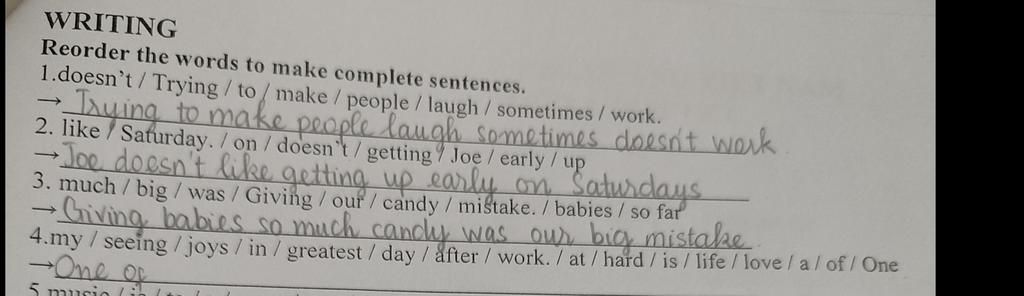 WRITING
Reorder the words to make complete sentences.
1.doesn't / Trying / to / make / people / laugh / sometimes / work.
→ Trying to make people laugh sometimes doesn't work
2. like / Saturday. / on / doesn't / getting / Joe / early / up
→ Joe doesn't like getting up early on Saturdays
3. much / big / was / Giving / our / candy / mistake. / babies / so far
→ Giving babies so much candy was our big mistake
4.my / seeing / joys / in / greatest / day / after / work. / at / hard / is / life / love / a / of / One
→ One of
5 music